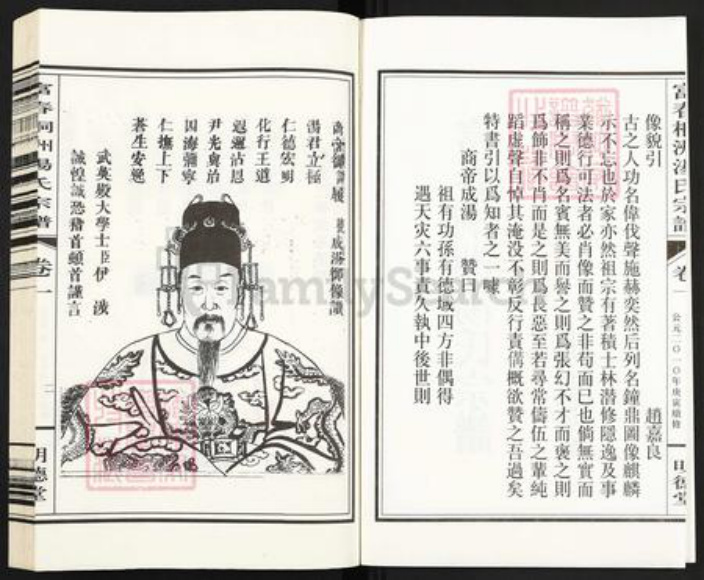 像貌引
趙嘉良
古之人功名偉伐聲施赫奕然后列名鐘鼎圖像麒麟
示不忘也於家亦然祖宗有著積士林潜修隱逸及事
業德行可法者必肖像而贊之非苟而已也倘無實而
稱之則爲名賓無美而譽之則爲張幻不才而褒之則
爲飾非不肖而是之則爲長惡至若尋常儔伍之輩純
蹈虛聲自悼其淹没不彰反行責備概欲贊之吾過矣
特書引以爲知者之一噱
商帝成湯 贊曰
祖有功孫有德域四方非偶得
遇天灾六事責久執中後世則
富春桐洲湯氏宗譜
卷一
公元二〇一〇年庚寅續修
明德堂
湯君立極
仁德宏明
化行王道
遐邇沾恩
尹光輿治
因海彌寧
仁撫上下
蒼生安
武英殿大學士臣伊
誠惶誠恐稽首頓首謹言
富春桐洲湯氏宗譜
卷一
二
明德堂
FamilySearch